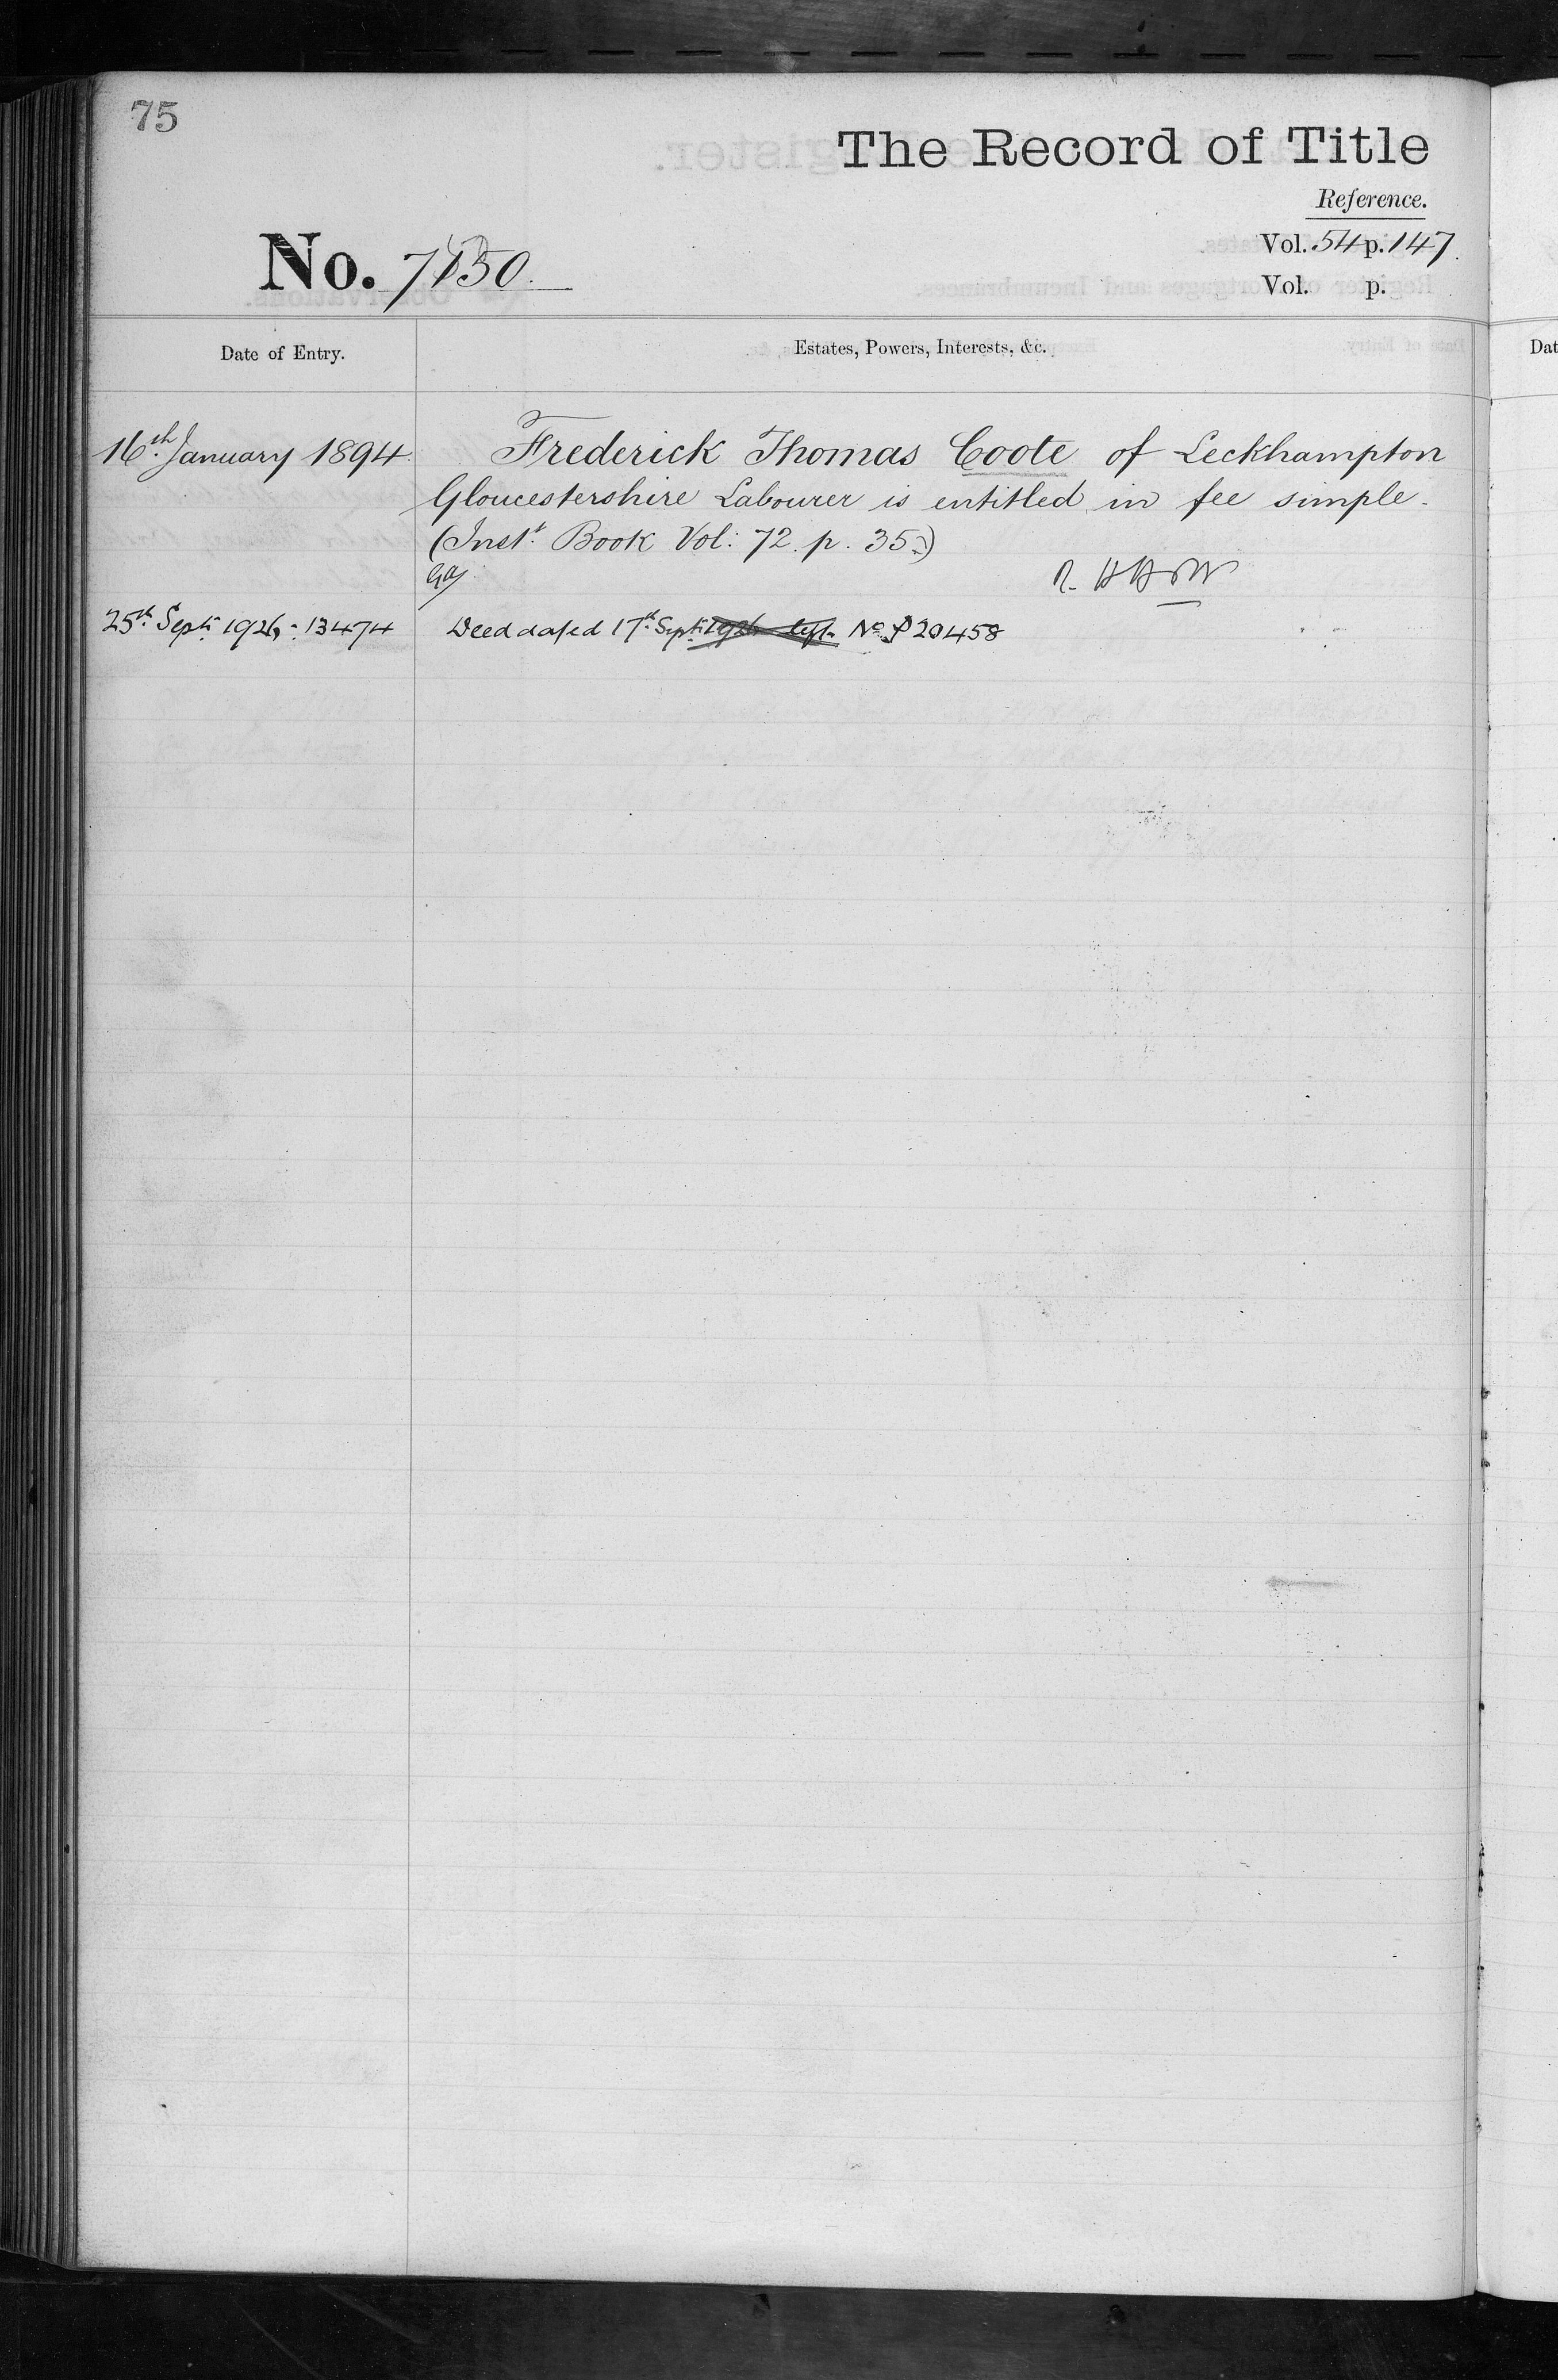 75
The Record of Title
Reference.
Vol. 54 p. 147.
No. 7150.
Vol. p.
Date of Entry.
Estates, Powers, Interests, &c.
16th January 1894.
Frederick Thomas Coote of Leckhampton
Gloucestershire Labourer is entitled in fee simple.
(Inst. Book Vol: 72. p. 35.)
25th Sept: 1926 - 13474
Deed dated 17th Sept: 1926 No. P 20458
Dat